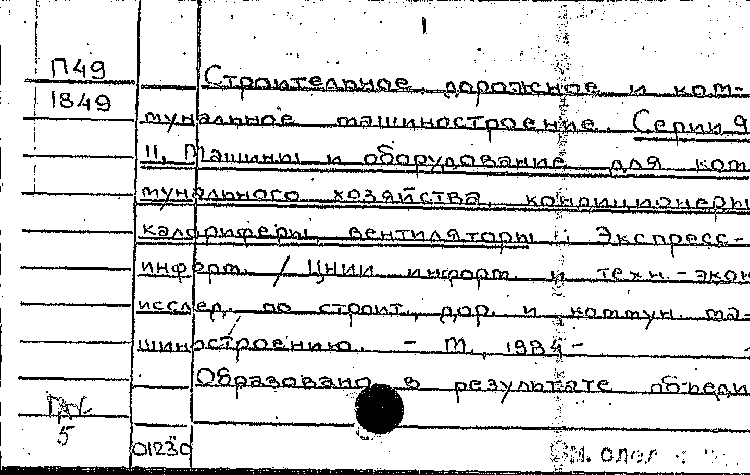 1
П49
1849
Строительное, дорожное и ком-
мунальное машиностроение. Серии 9,
11, Машины и оборудование для ком
мунального хозяйства, кондиционеры
калориферы вентиляторы : Экспресс-
информ. / ЦНИИ информ. и техн.-экон
исслед. по строит., дор. и коммун. ма-
шиностроению. - М., 1984 -
Образовано в результате объеди
5
01230
См. след